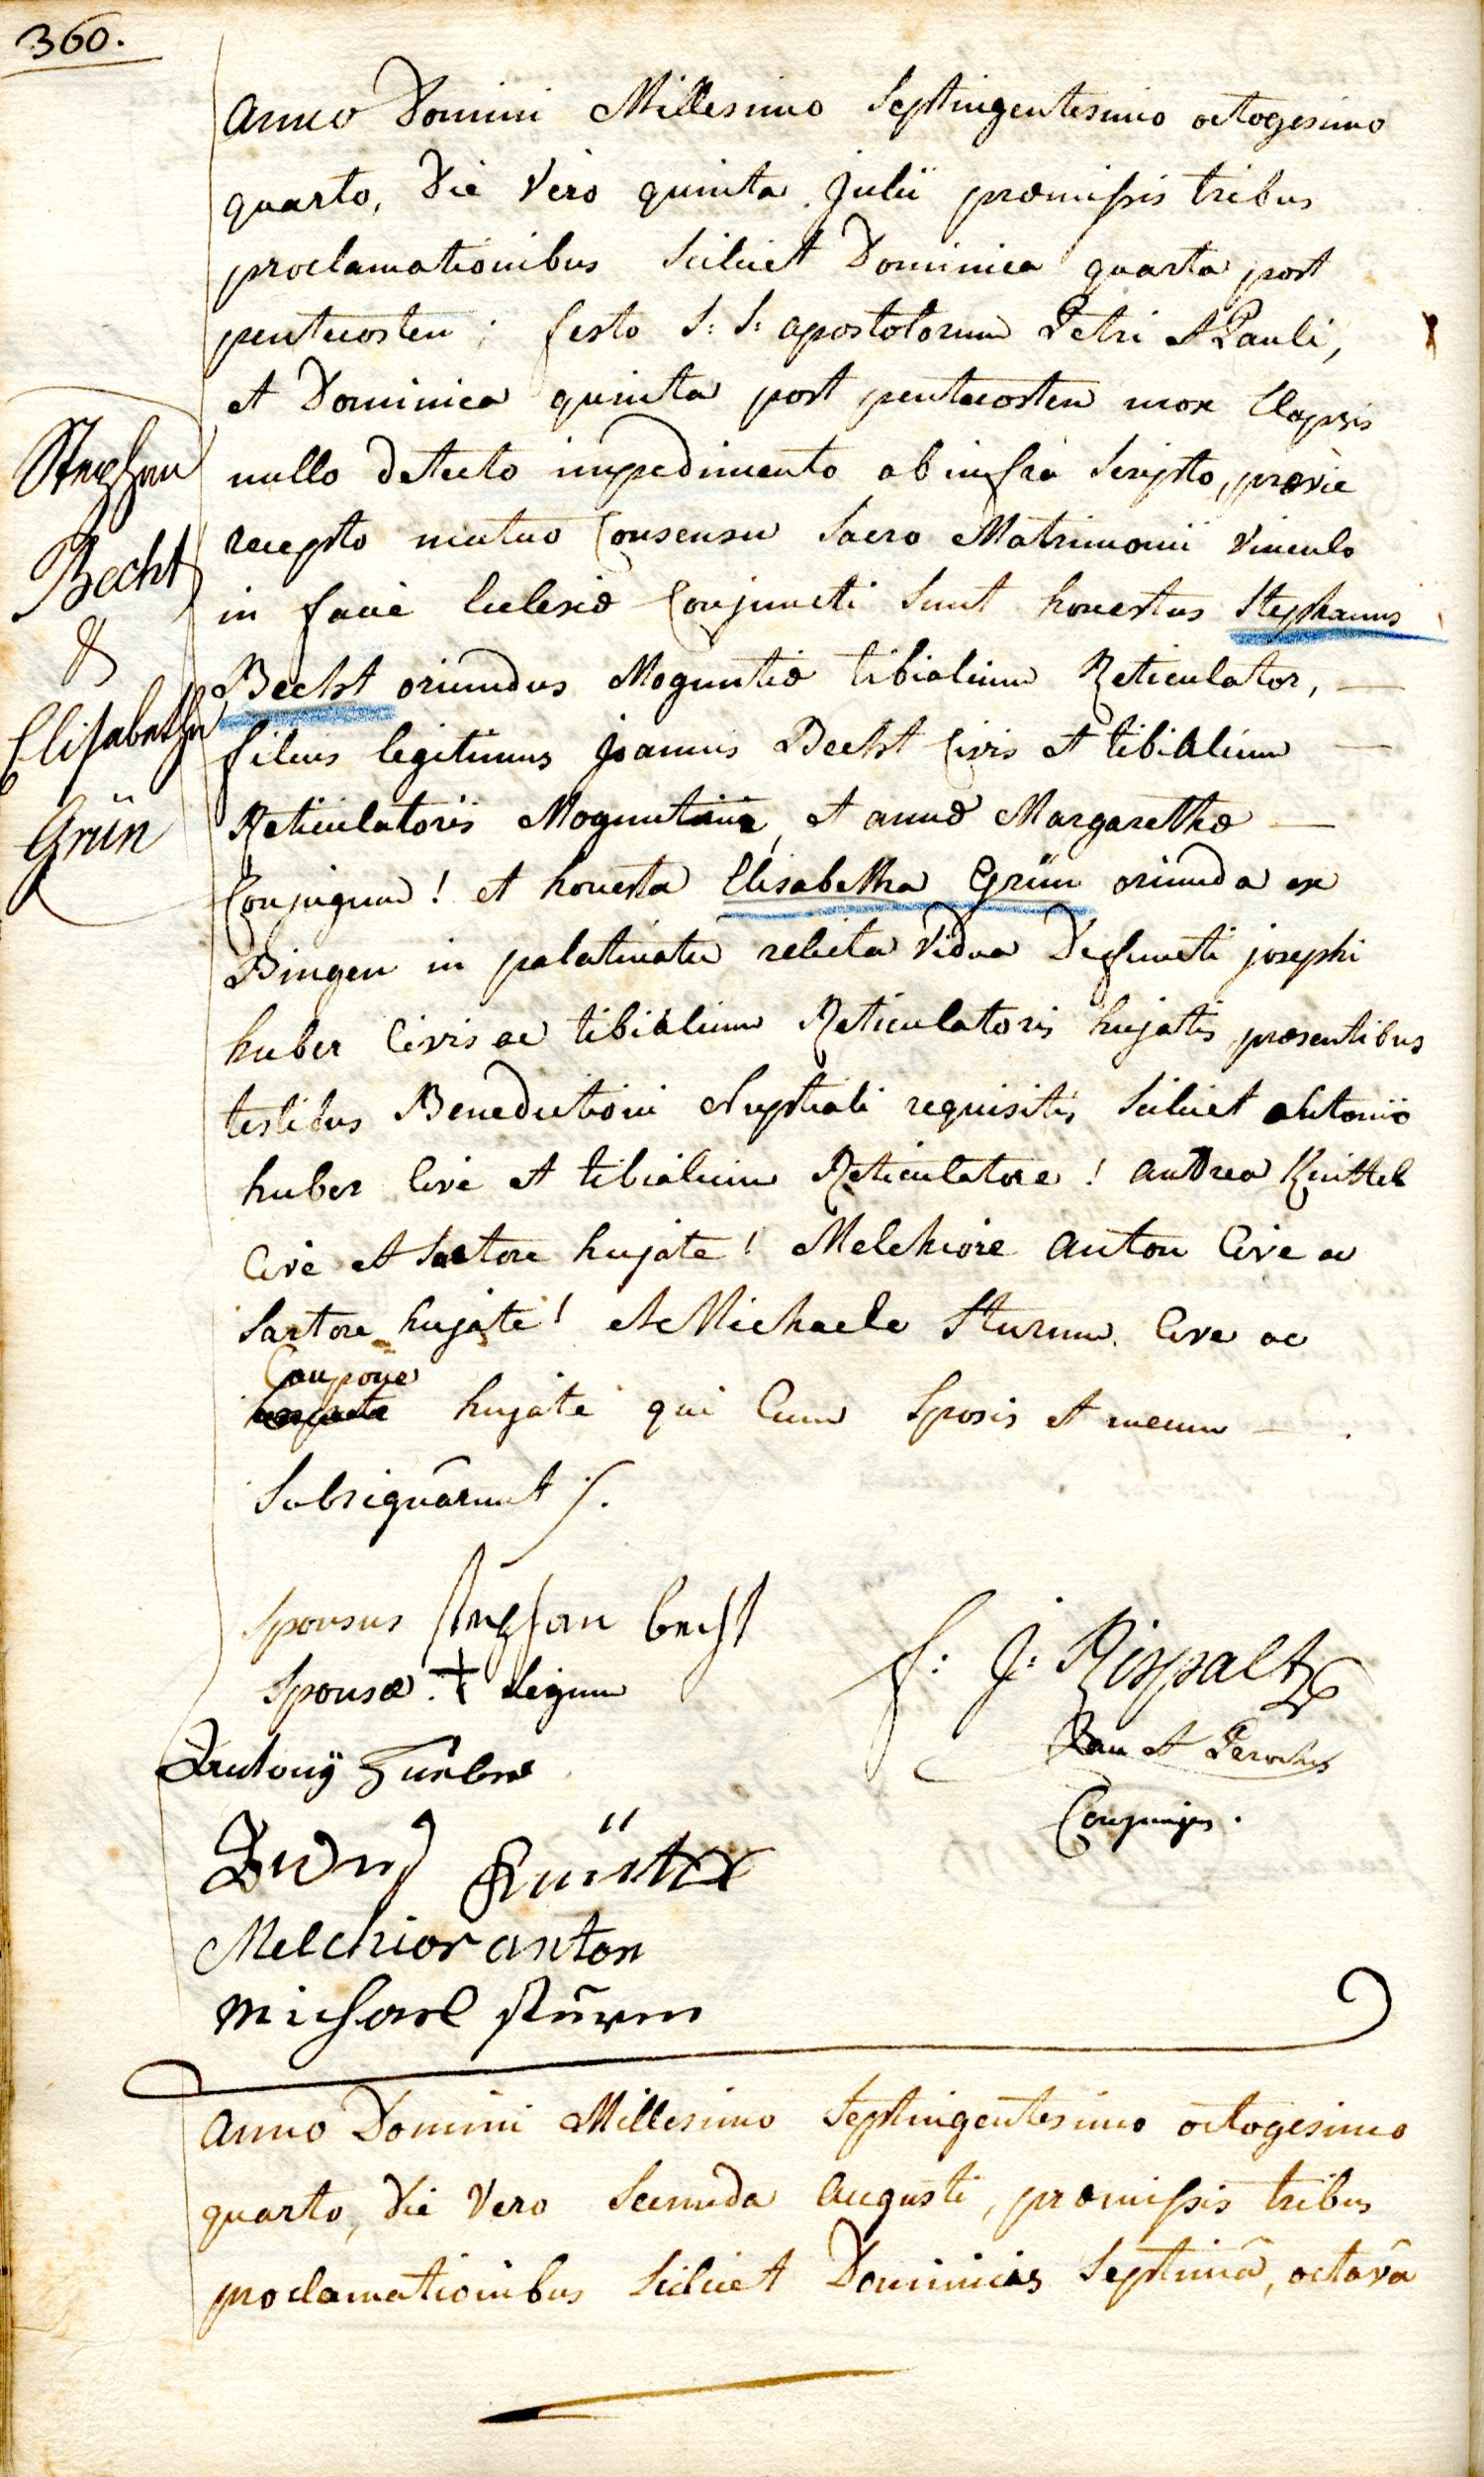 360.
Anno Domini Millesimo Septingentesimo octogesimo
quarto, Die Vero quinta Julii præmissis tribus
proclamationibus Scilicet Dominica quarta post
pentecosten; festo S: S: apostolorum Petri et Pauli,
et Dominica quinta post pentecosten mox Elapsis
nullo detecto impedimento ab infra Scripto, prævie
recepto mutuo Consensu Sacro Matrimonii Vinculo
in facie Ecclesiæ Conjuncti Sunt honestus Stephanus
Becht oriundus Moguntiæ tibialium Reticulator,
filius legitimus Joannis Becht Civis et tibialium
Reticulatoris Moguntiæ, et annæ Margarethæ
Conjugum! et honesta Elisabetha Grün oriunda ex
Bingen in palatinatu relicta Vidua Defuncti josephi
huber Civis ac tibialium Reticulatoris hujatis, præsentibus
testibus Benedictioni Nuptiali requisitis, Scilicet Antonio
huber Cive et tibialium Reticulatore! andrea Knittel
Cive et Sartore hujate! Melchiore anton Cive ac
Sartore hujate! et Michaele Sturm Cive ac
Caupone
hujate qui Cum Sposis et mecum
Subsignârunt ;/.
Stephan
Becht
&
Elisabetha
Grün
Sponsus Stephan becht
Sponsæ + Signum
Antonÿ Huber
Melchior anton
Michael sturm
f: J: Rispalt
et Parochus
Conjungens.
Anno Domini Millesimo Septingentesimo octogesimo
quarto, Die Vero Secunda Augusti, præmissis tribus
proclamationibus Scilicet Dominicis Septimâ, octavâ